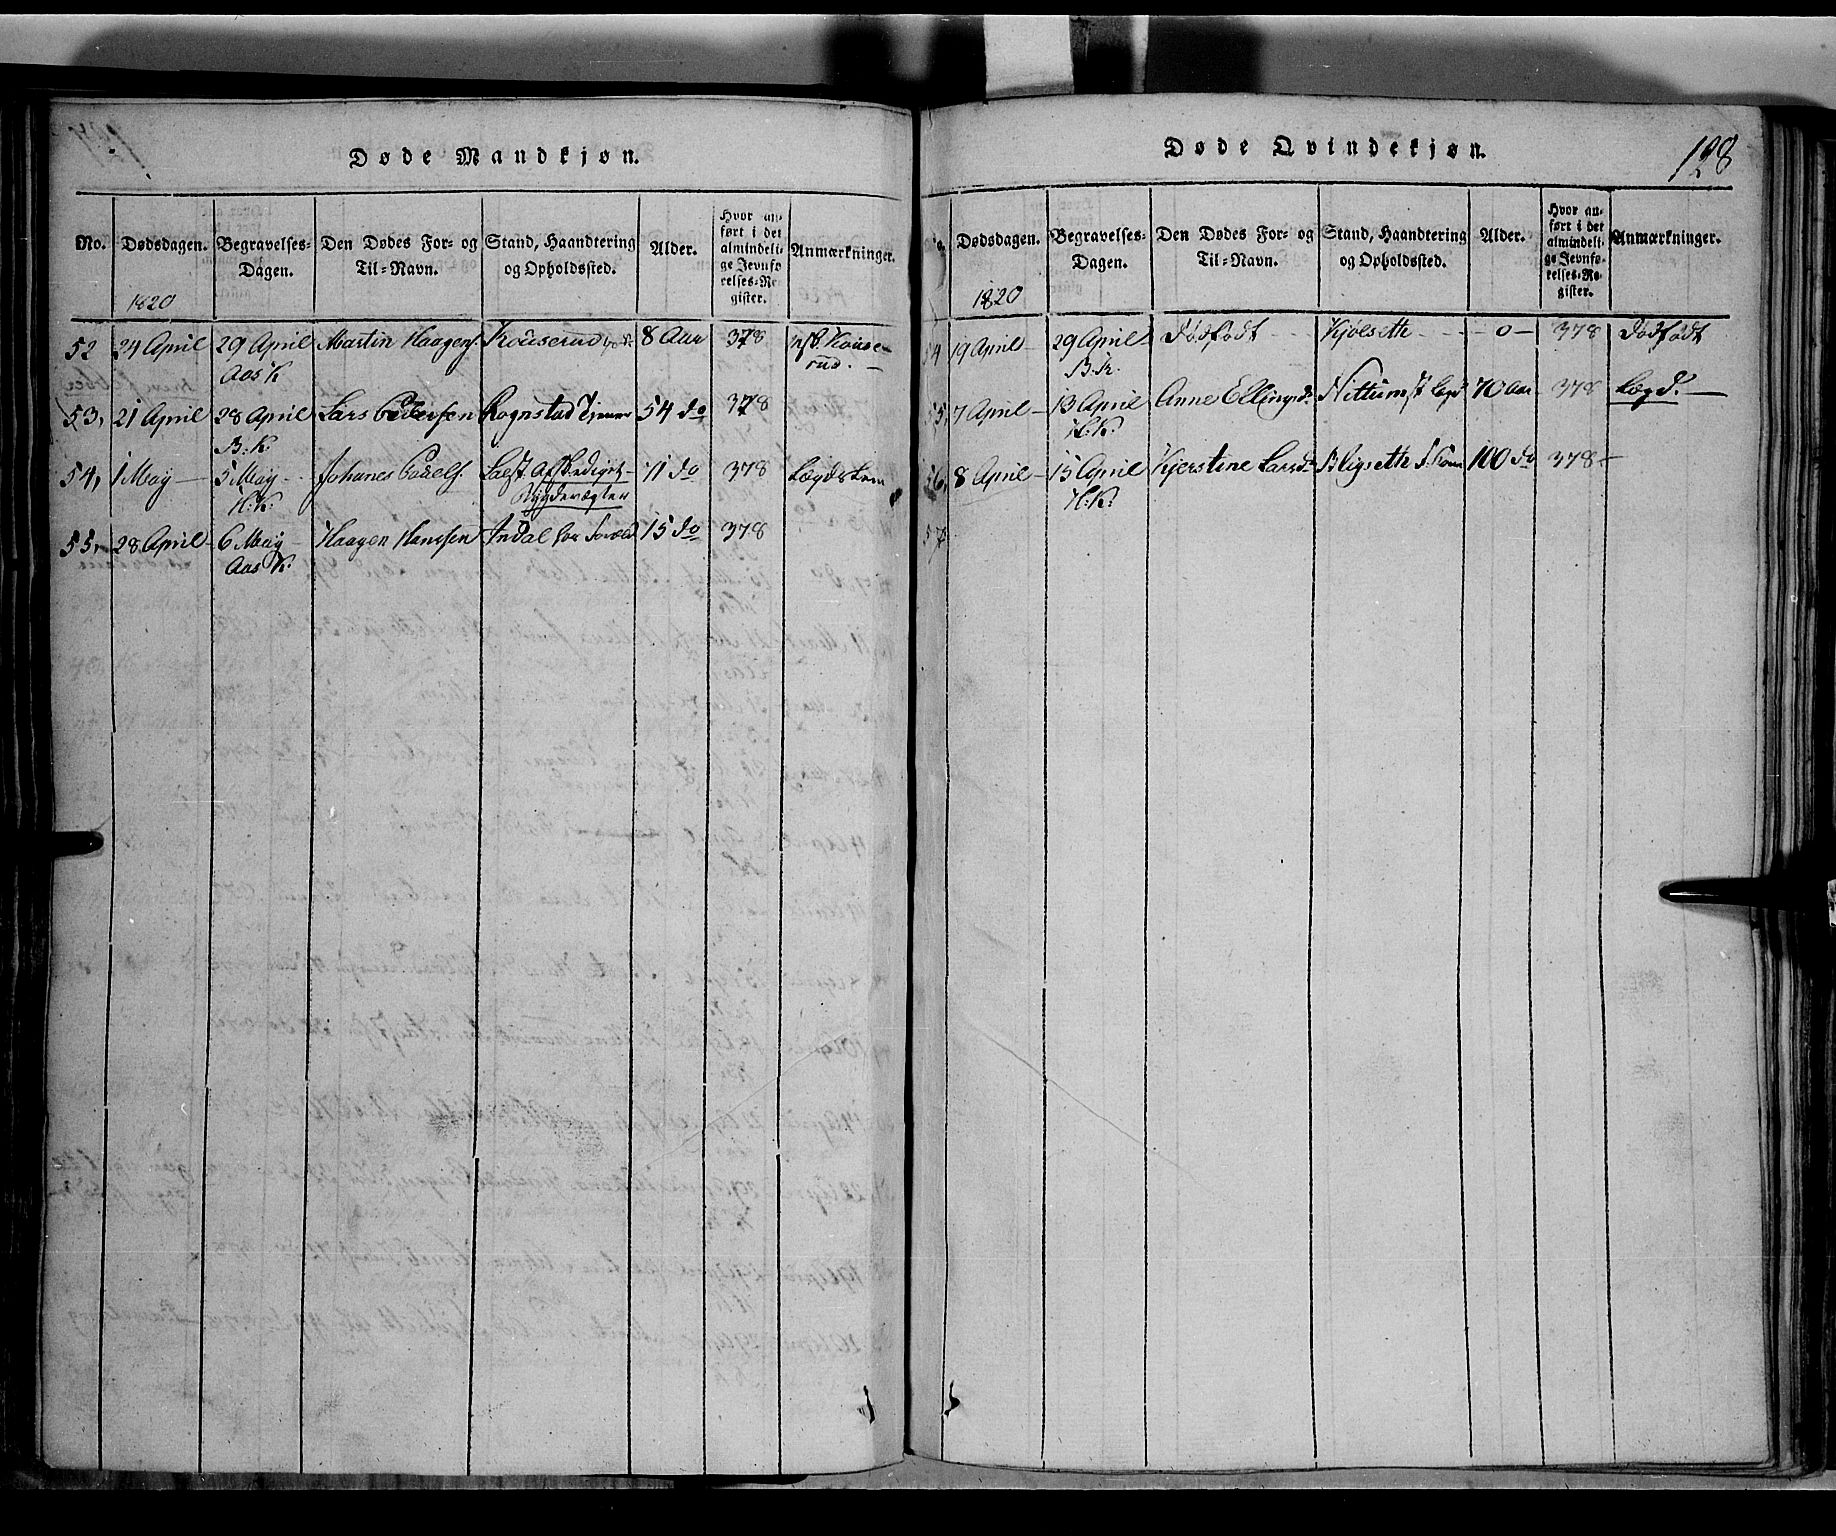 Døde Mandkjøn.
No.
Dødsdagen.
Begravelses-
Dagen.
Den Dødes For- og
Til-Navn.
Stand, Haandtering
og Opholdssted.
Alder.
Hvor an-
ført i det
almindeli-
ge Jevnfø
relses-Re-
gister.
Anmærkninger.
1820
52 24 April 29 April Martin Haagens. Kouserud 8 Aar 378
Aas K rud.
53, 21 April 28 April Lars Pedersen Rognstad 54 do 378
B. K.
54, 1 May 5 May Johanes 71 do 378 Lægdslem
H. K.
55, 28 April 6 May Haagen Hanssen Indal 15 do 378
Aas K.
Døde Qvindekjøn.
128
Dødsdagen.
Begravelses-
Dagen.
Den Dødes For- og
Til-Navn.
Stand, Haandtering
og Opholdssted.
Alder.
Hvor an-
ført i det
almindeli-
ge Jevnfø-
relses-Re-
gister.
Anmærkninger.
1820
54 19 April 29 April Dødfødt Kjølseth 0 378 Dødfødt
B. K.
55, 7 April 13 April Anne Ellingsd. 70 Aar 378 Lægd.
H. K.
56, 8 April 15 April Kjerstine Larsd. 100 do 378
H. K.
57